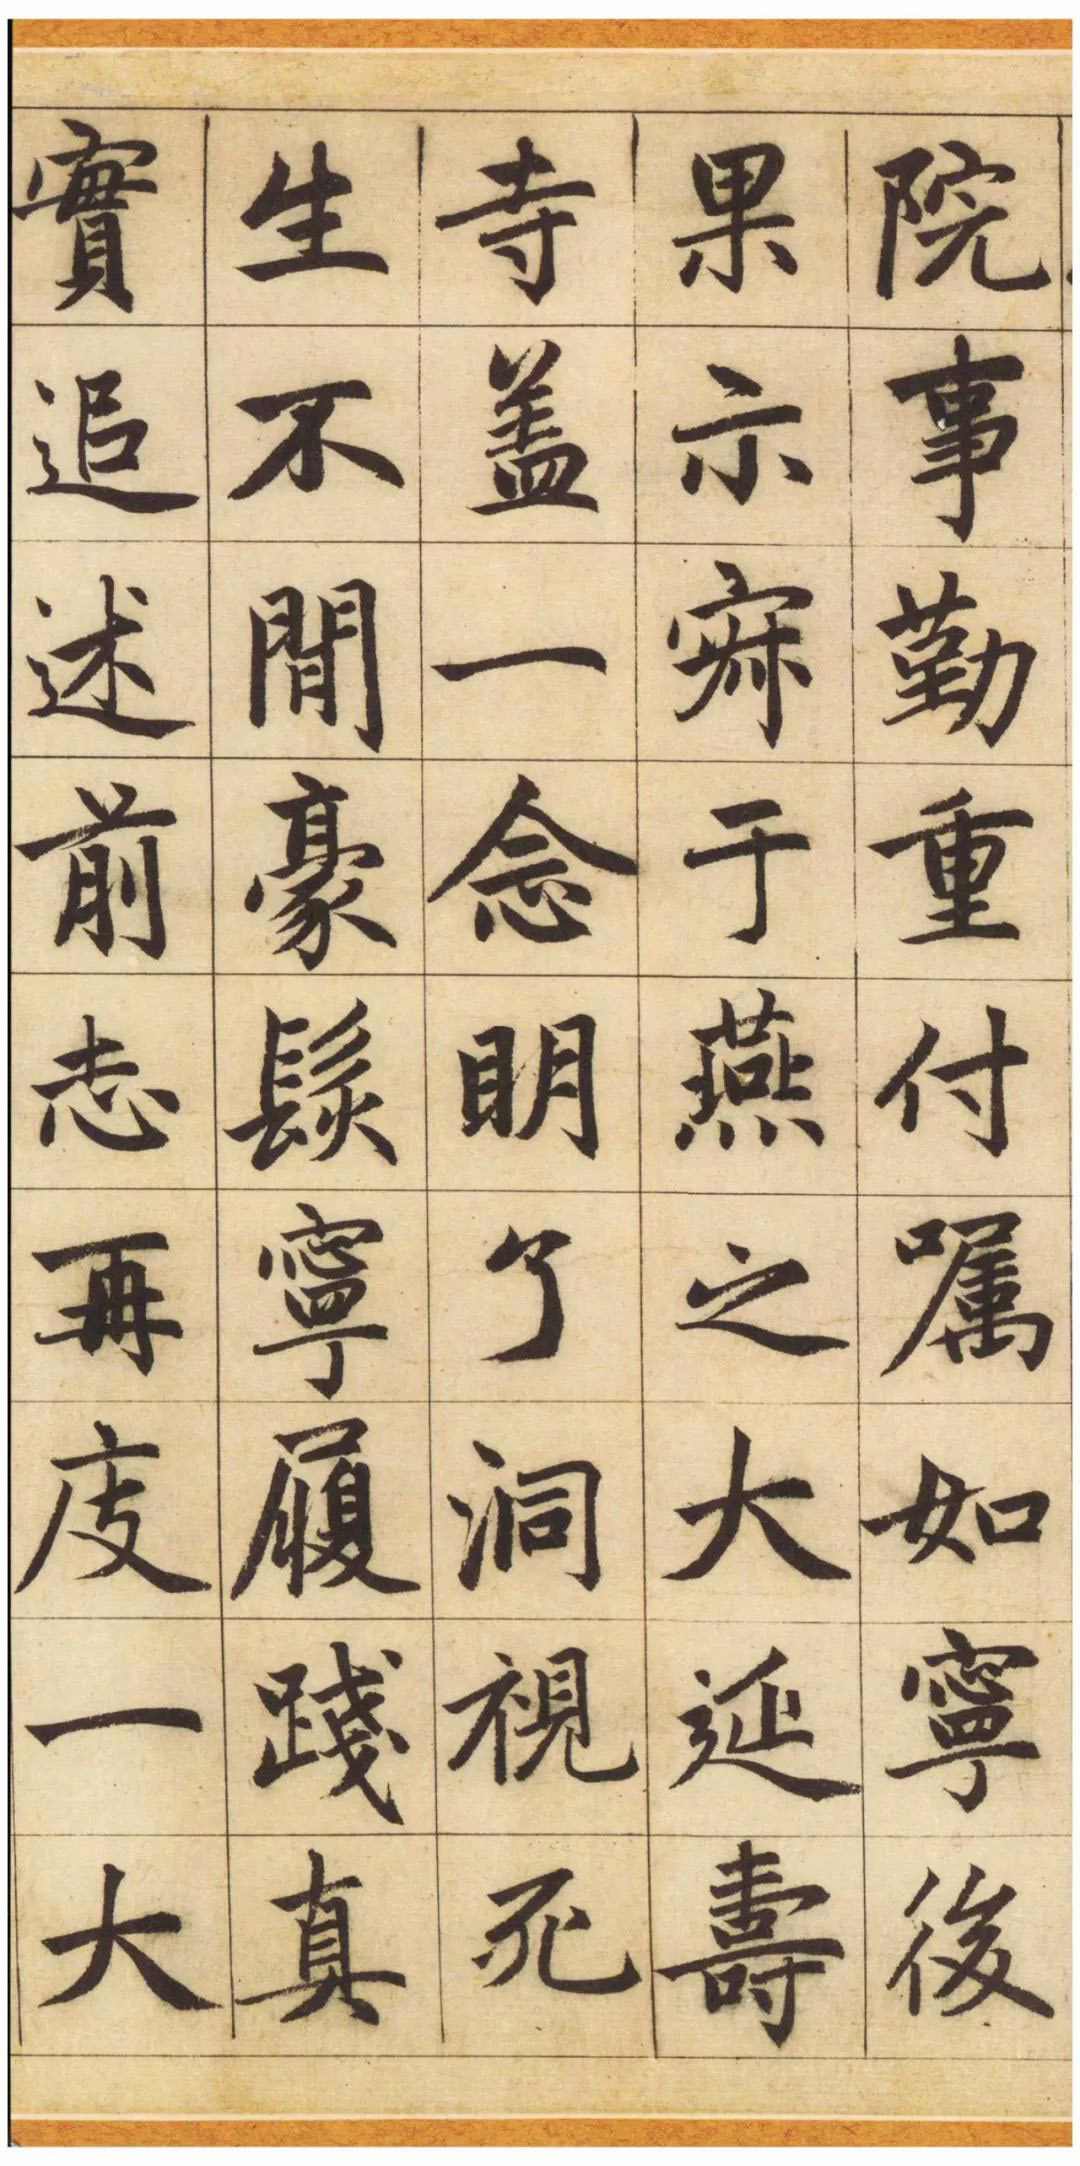 院事勤重付嘱如寧後
果示寂于燕之大延壽
寺盖一念明了洞視死
生不間豪髮寧履踐真
實追述前志再度一大